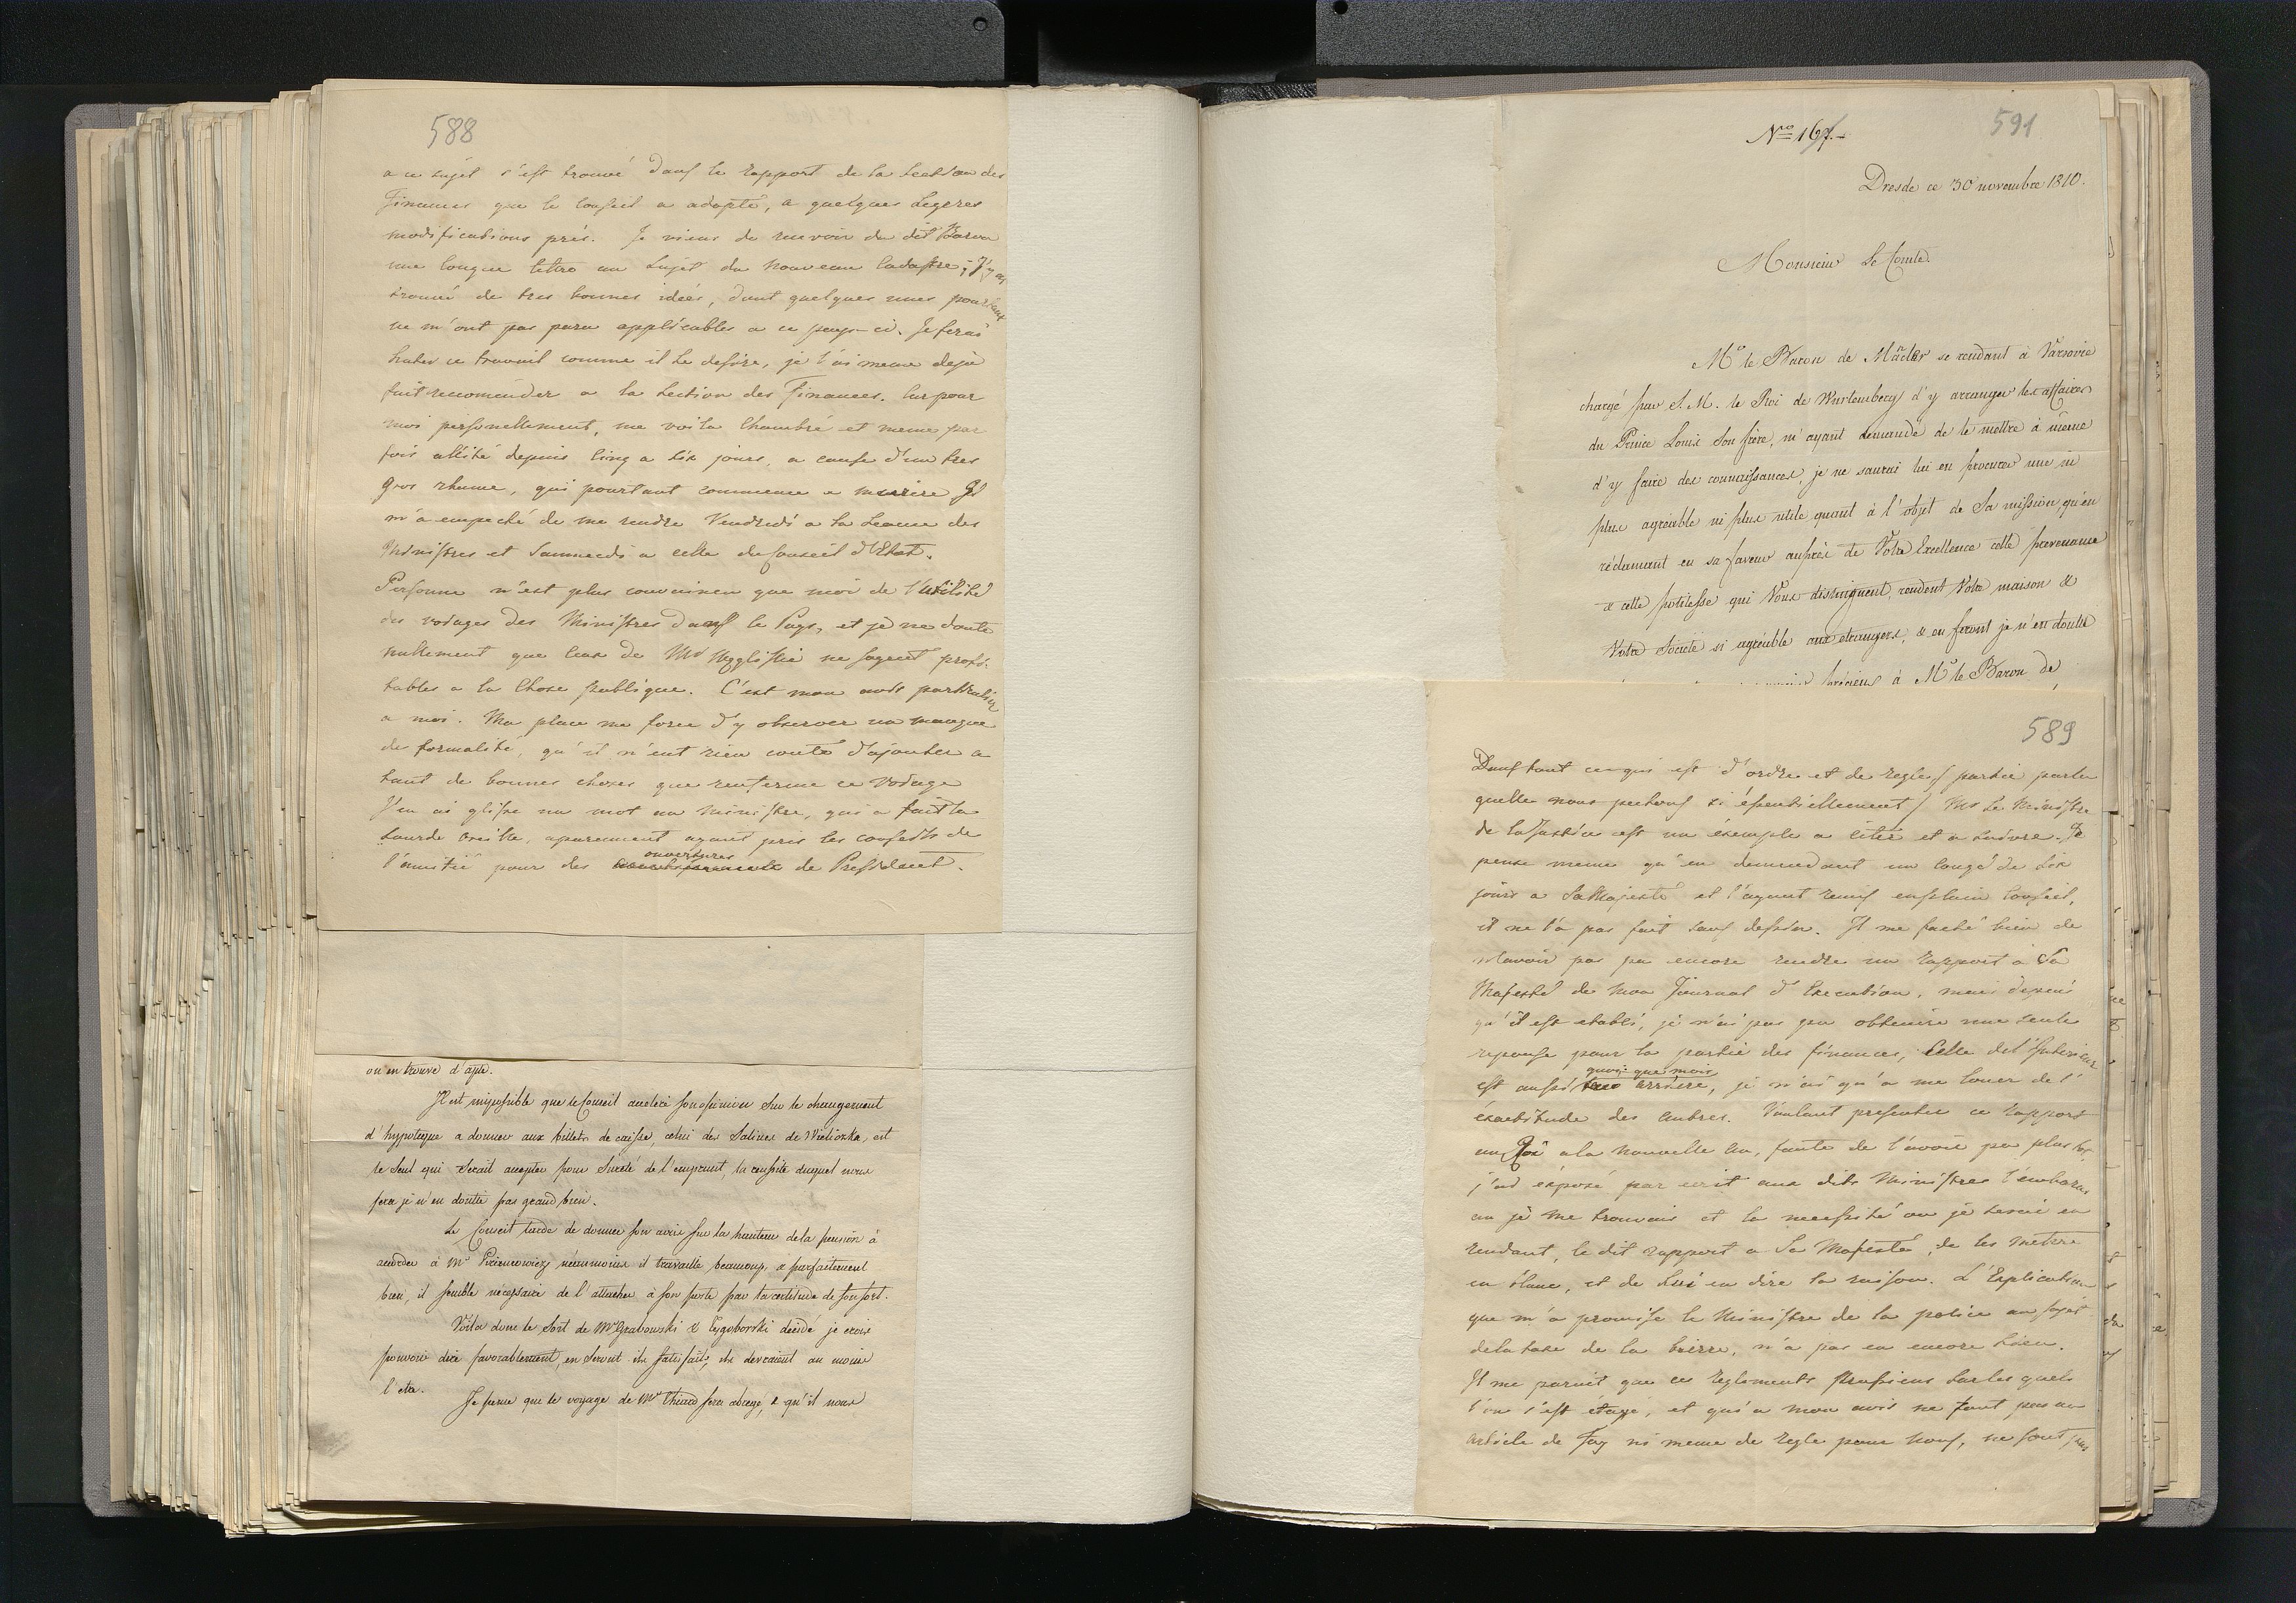 588
a ce sujet s'est trouvé dans le rapport de la section des
Finances que le conseil a adopté, a quelques legeres
modifications près. Je viens de recevoir du dit Baron
une longue lettre au sujet du nouveau Cadastre; J'y ai
trouvé de tres bonnes idées, dont quelques unes pourtant
ne m'ont pas paru applicables a ce pays-ci. Je ferai
hater ce travail comme il le desire, je l'ai meme deja
fait recomender a la section des Finances. Car pour
moi personellement, me voila Chambré et meme par
fois allité depuis cinq a six jours, a cause d'un tres
gros rhume, qui pourtant commence a murire Il
m'a empeché de me rendre Vendredi a la seance des
Ministres et Sammedi a celle du Conseil d'Etat.
Personne n'est plus convaincu que moi de l'utilité
des vodages des Ministres dans le Pays, et je ne doute
nullement que ceux de Mr ne soyent profi-
tables a la Chose publique. C'est mon avis particulier
a moi. Ma place me force d'y observer un manque
de formalité, qu'il n'eut rien couté d'ajouter a
tant de bonnes choses que renferme ce vodage
J'en ai glissé un mot au ministre, qui a fait la
sourde oreille, aparement ayant pris les conseils de
ouvertures
l'amitié pour des de President.
ou en trouve d'apte.
Il est impossible que le Conseil accelere son opinion sur le changement
d'hypoteque a donner aux billets de caisse, celui des Salines de Wieliczka, est
le seul qui serait accepter pour sureté de l'emprunt, la reussite duquel nous
fera je n'en doute pas grand bien.
Le Conseil tarde de donner son avis sur la hauteur de la pension à
accorder à Mr néanmoins il travaille beaucoup, & parfaitement
bien, il semble nécessaire de l'attacher à son poste par la certitude de son sort.
Voila donc le sort de Mrs Grabowski & Tegoborski décidé je crois
pouvoir dire favorablement, en seront ils satisfaits, ils devraient au moins
l'etre.
Je pense que le voyage de Mr Thiard sera abregé, & qu'il nous
591
No 167.-
Dresde ce 30 novembre 1810.
Monsieur Le Comte.
Mr le Baron de se rendant à Varsovie
chargé par S. M. le Roi de Wurtemberg d'y arranger les affaires
du Prince Louis son frère, m'ayant demandé de le mettre à même
d'y faire des connaissances, je ne saurai lui en procurer une ni
plus agréable ni plus utile quant à l'objet de Sa mission qu'en
réclamant en sa faveur auprès de Votre Excellence cette prevenance
& cette politesse qui Vous distinguent, rendent Votre maison &
Votre Société si agréable aux etrangers, & en feront je n'en doute
précieux à Mr le Baron de
589
Dans tout ce qui est d'ordre et de regles (partie par la
quelle nous pechons si essentiellement) Mr le Ministre
de la Justice est un éxemple a citer et a suivre. Je
pense meme qu'en demendant un congé de six
jours a Sa Majesté et l'ayant remis en plain Conseil,
il ne l'a pas fait sans dessin. Il me fache bien de
n'avoir pas pu encore rendre un Rapport a Sa
Majesté de mon Journal d'Execution, mais depuis
qu'il est etabli, je n'ai pas pu obtenire une seule
reponse pour la partie des finances, Celle de l'Interieur
quoique mois
est aussi arriere, je n'ai qu'a me louer de l'
éxactitude des autres. Voulant presenter ce rapport
au Roi a la nouvelle An, faute de l'avoir pu plus tot,
j'ai éxposé par ecrit aux dits Ministres l'embaras
ou je me trouvais et la necessité ou je serai en
rendant, le dit rapport a Sa Majesté, de les metre
en blanc, et de Lui en dire la raison. L'Explication
que m'a promise le Ministre de la police au sujet
de la taxe de la bierre, n'a pas eu encore lieu.
Il me paroit que ces reglements Prussiens sur les quels
l'on s'est étayé, et qui a mon avis ne font pas un
article de foy ni meme de regle pour nous, ne sont pas